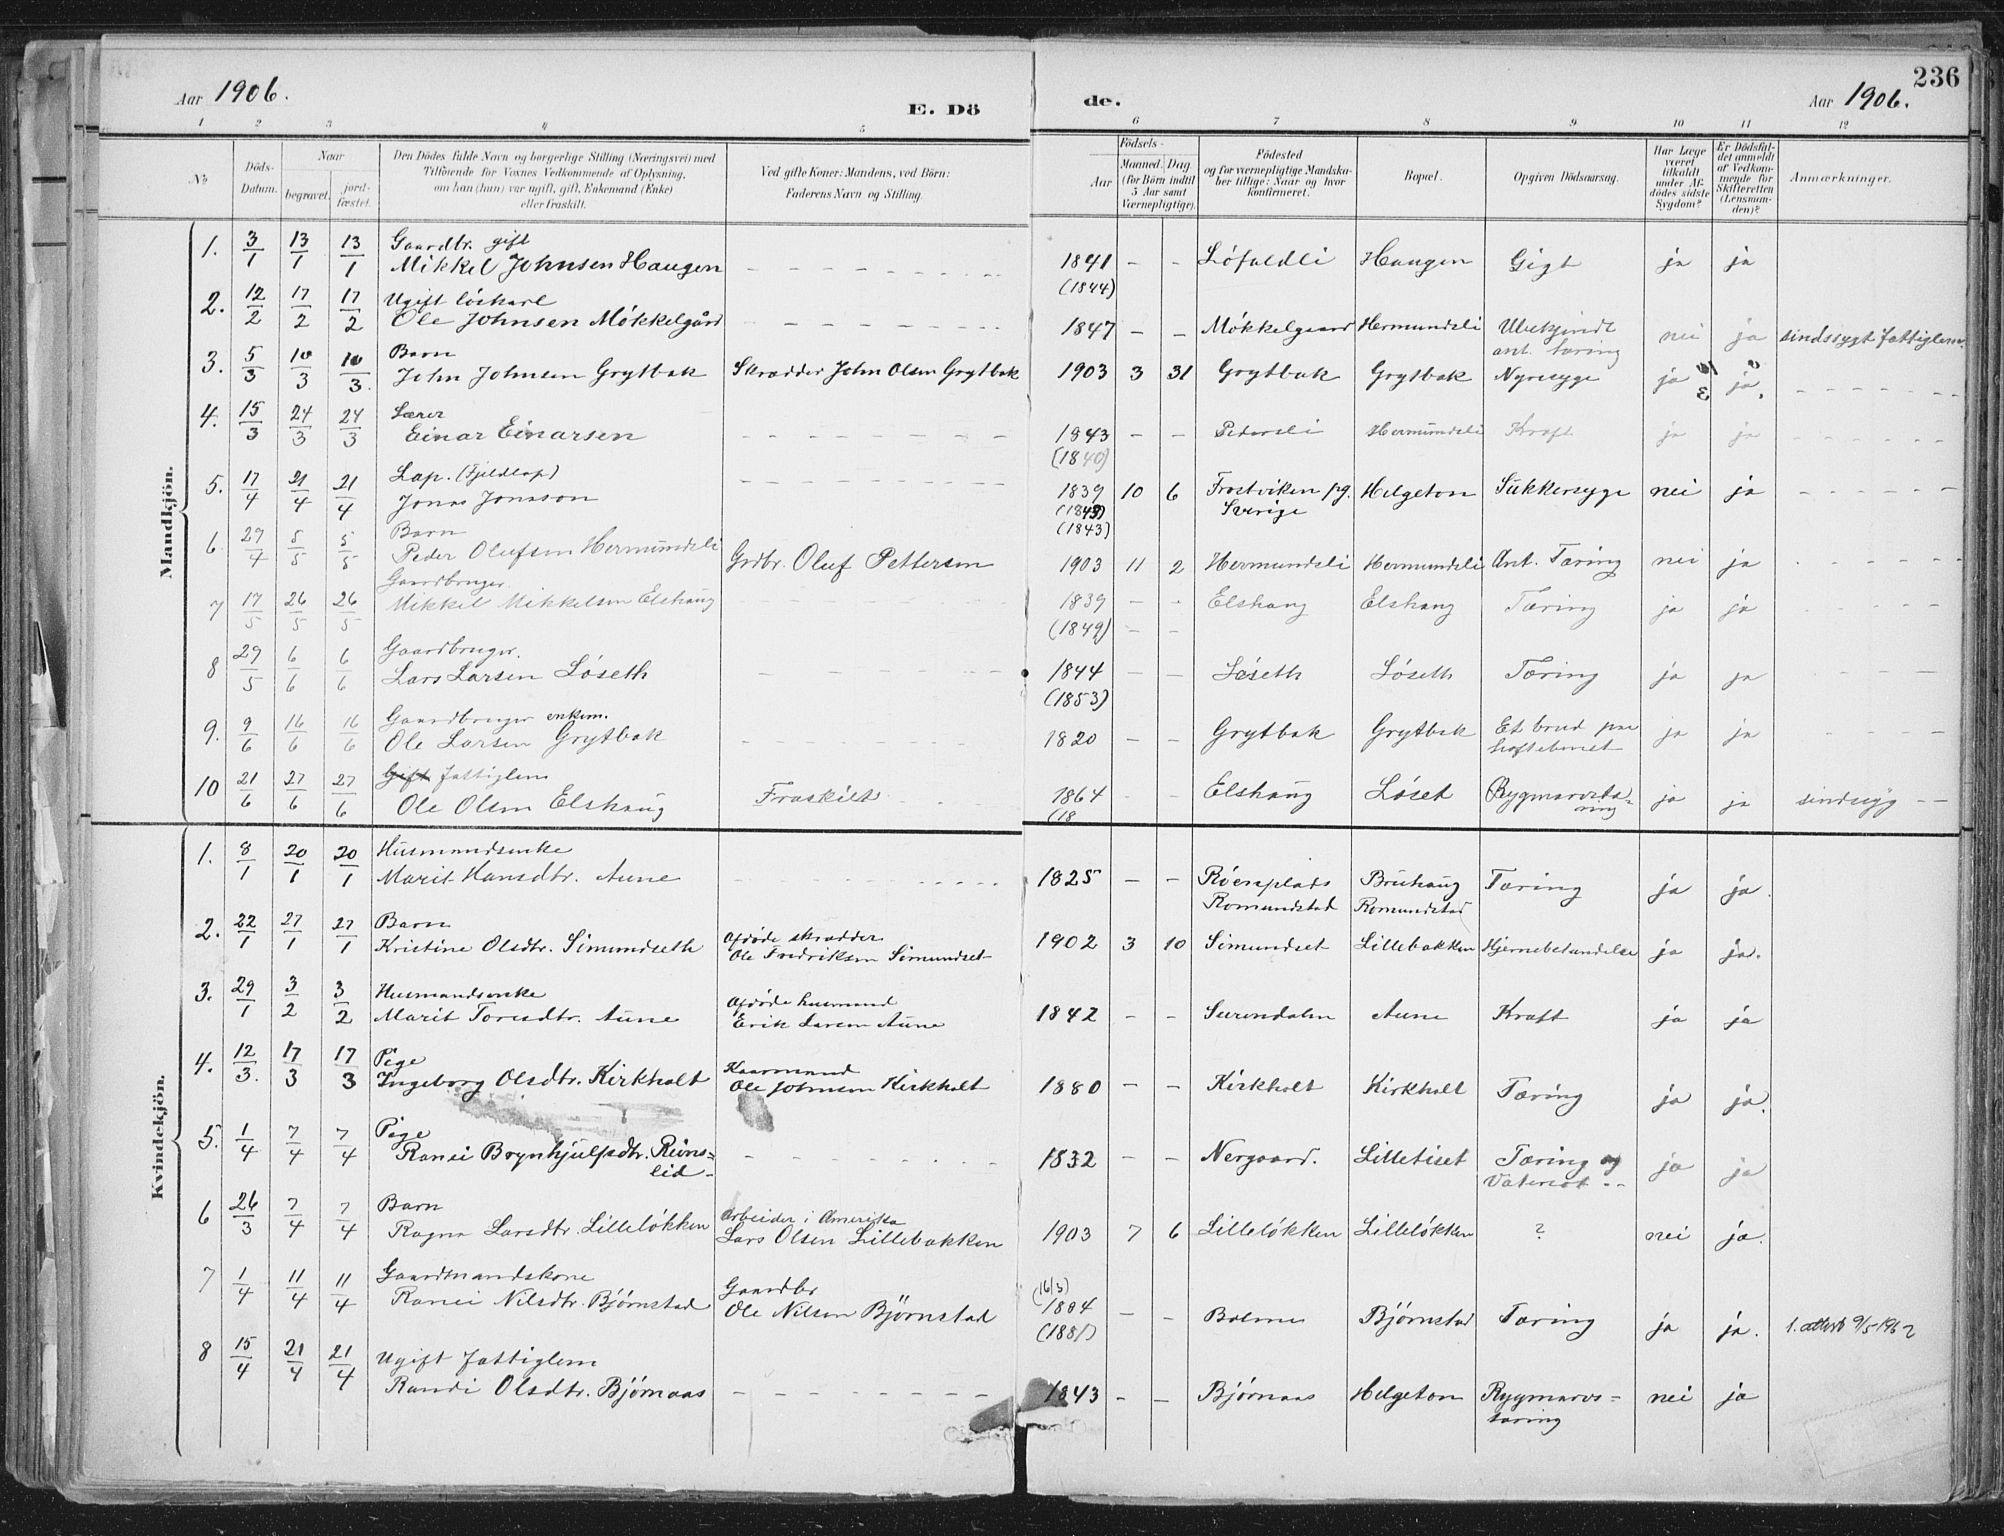 236
Aar 1906.
E. Dö
de.
Aar 1906.
1 2 3 4 5 6 7 8 9 10 11 12
No
Döds-
Datum.
Naar
begravet.
jord-
fæstet.
Den Dödes fulde Navn og borgerlige Stilling (Næringsvei) med
Tilföiende for Voxnes Vedkommende af Oplysning,
om han (hun) var ugift, gift, Enkemand (Enke)
eller fraskilt.
Ved gifte Koner: Mandens, ved Börn:
Faderens Navn og Stilling.
Födsels-
Aar
Maaned. Dag
(for Börn indtil
5 Aar samt
Værnepligtige).
Födested
og for værnepligtige Mandska-
ber tillige: Naar og hvor
konfirmeret.
Bopæl.
Opgiven Dödsaarsag.
Har Læge
været
tilkaldt
under Af-
dödes sidste
Sygdom?
Er Dödsfal-
det anmeldt
af Vedkom-
mende for
Skifteretten
(Lensman-
den)?
Anmærkninger.
Mandkjön.
1. 3/1 13/1 13/1 Gaardbr. gift
Mikkel Johnsen Haugen 1841 – – Løfaldli Haugen Gigt ja ja
(1844)
2. 12/2 17/2 17/2 Ugift løskarl
Ole Johnsen Møkkelgård 1847 – – Møkkelgaard Hermundsli Ubekjendt nei ja sindssygt fattiglem.
ant. tæring
3. 5/3 10/3 10/3. Barn
John Johnsen Grytbak Skrædder John Olsen Grytbak 1903 3 31 Grytbak Grytbak Nyresyge ja ja.
4. 15/3 24/3 24/3 Lærer
Einar Einarsen 1843 – – Pedersli Hermundsli Kræft ja ja
(1840)
5. 17/4 21/4 21/4 Lap. (Fjeldlap)
Jonas Jonasson 1839 10 6 Frostviken pg. Helgeton Sukkersyge nei ja
(1843) Sverige
(1843)
6. 27/4 5/5 5/5 Barn
Peder Olufsen Hermundsli Grdbr. Oluf Pettersen 1903 11 2 Hermundsli Hermundsli Ant. Tæring nei ja
7 17/5 26/5 26/5 Gaardbruger.
Mikkel Mikkelsen Elshaug 1839 – – Elshaug Elshaug Tæring ja ja
(1849) – –
8 29/5 6/6 6/6 Gaardbruger.
Lars Larsen Løseth 1844 Løseth Løseth Tæring ja ja
(1853)
9. 9/6 16/6 16/6 Gaardbruger enkem.
Ole Larsen Grytbak 1820 – – Grytbak Grytbak Et brud paa ja ja
hoftebenet
10 21/6 27/6 27/6 Gift fattiglem
Ole Olsen Elshaug Fraskilt 1864 – – Elshaug Løset Rygmarvstæ- ja ja sindssyg
(18 ring
Kvindekjön.
1. 8/1 20/1 20/1 Husmandsenke
Marit Hansdtr. Aune 1825 – – Røensplads Bruhaug Tæring ja ja.
Romundstad Romundstad
2. 22/1 27/1 27/1 Barn
Kristine Olsdtr. Simundseth Afdøde skrædder
Ole Fredriksen Simundset 1902 3 10 Simundset Lillebakken Hjernebetændelse ja ja.
3. 29/1 3/2 3/2 Husmandsenke
Marit Toresdtr. Aune Afdøde husmand
Erik Larsen Aune 1842 – – Surendalen Aune Kræft ja ja
4. 12/3. 17/3 17/3 Pige
Ingeborg Olsdtr. Kirkholt Kaarmand
Ole Johnsen Kirkholt 1880 – – Kirkholt Kirkholt Tæring ja ja.
5. 1/4 7/4 7/4 Pige
Ranei Brynhjulfsdtr. Røinslid 1832 – – Nergaard. Lilletiset Tæring og ja ja
Vatersot
6 26/3 7/4 7/4 Barn
Ragna Larsdtr. Lilleløkken Arbeider i Amerika
Lars Olsen Lillebakken 1903 7 6 Lilleløkken Lilleløkken ? nei ja.
7 1/4 11/4 11/4 Gaardmandskone
Ranei Nilsdtr. Bjørnstad Gaardbr
Ole Nilsen Bjørnstad (16/3)
1884 – – Bolme Bjørnstad Tæring ja ja. 1. attest 9/5 1962
(1881)
8 15/4 21/4 21/4 Ugift fattiglem
Randi Olsdtr. Bjørnaas 1843 – – Bjørnaas Helgeton Rygmarvs- nei ja
tæring